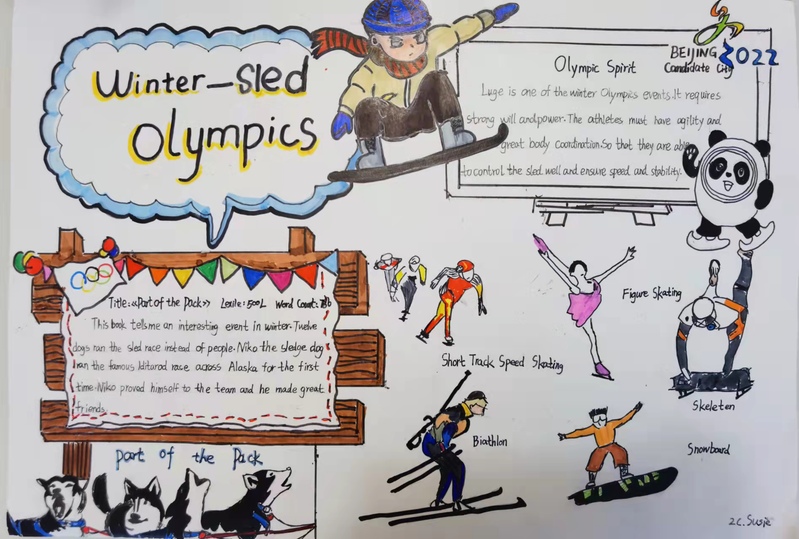 Winter-Sled
Olympics
BEIJING 2022
Candidate City
Olympic Spirit
Luge is one of the winter Olympics events.It requires
strong will and power.The athletes must have agility and
great body coordination.So that they are able
to control the sled well and ensure speed and stability.
Title:《Part of the Pack》 Lexile:500L Word Count:
This book tells me an interesting event in winter.Twelve
dogs ran the sled race instead of people.Niko the sledge dog
ran the famous Iditarod race across Alaska for the first
time.Niko proved himself to the team and he made great
friends.
part of the Pack
Short Track Speed Skating
Figure Skating
Skeleten
Biathlon
Snowboard
2C.Susie